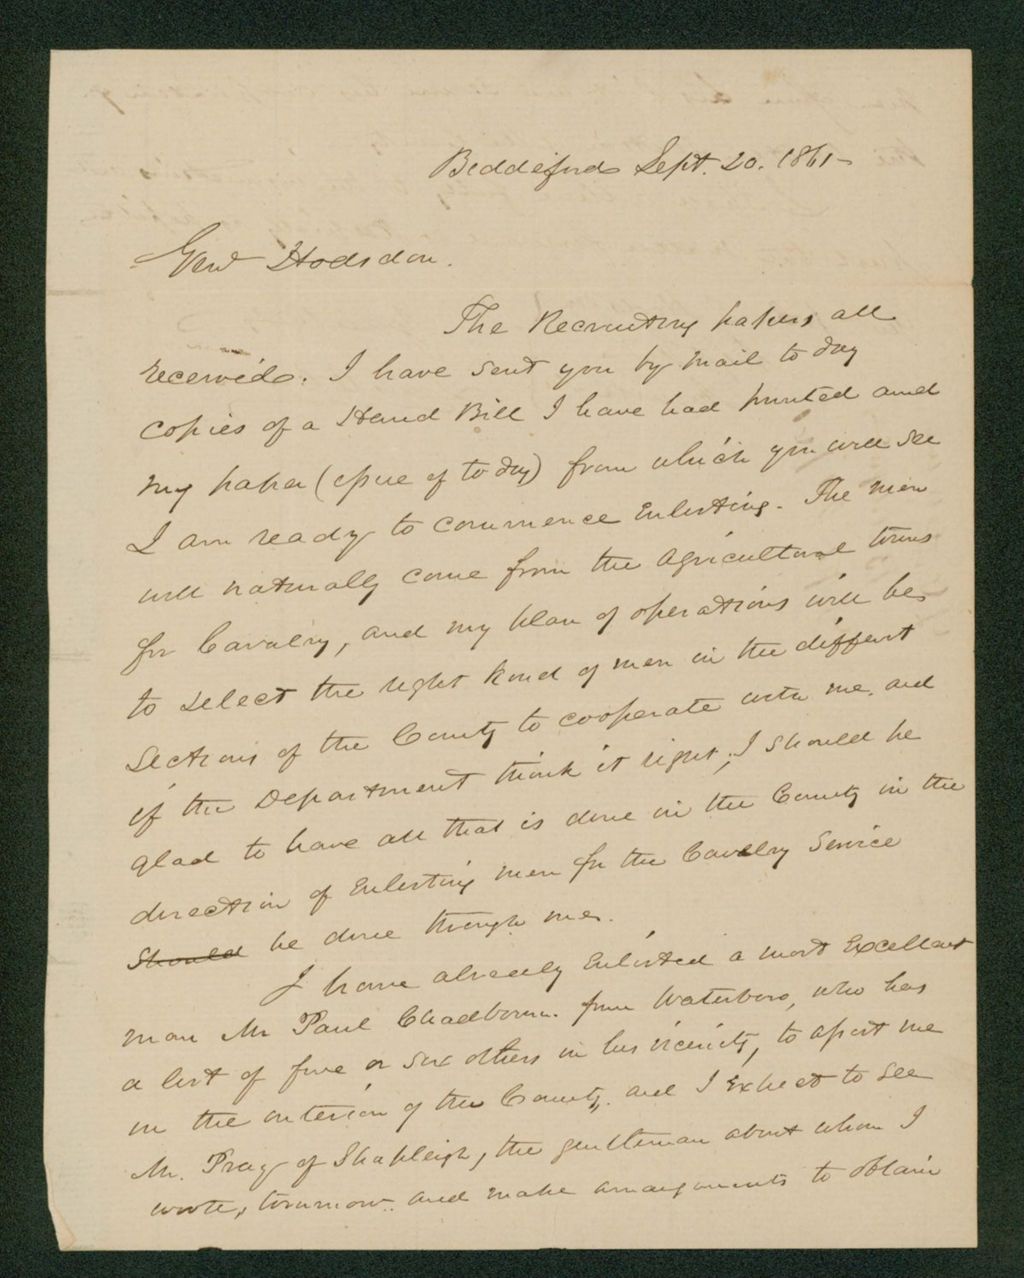 Biddeford Sept. 20. 1861-
Genl Hodsdon.
The Recruiting papers all
received. I have sent you by mail to day
copies of a Hand Bill I have had printed and
my paper (issue of to day) from which you will see
I am ready to commence Enlisting. The men
will naturally come from the Agricultural towns
for Cavalry, and my plan of operations will be
to select the right kind of men in the different
sections of the County to cooperate with me. and
if the Department think it right, I should be
glad to have all that is done in the County in the
direction of Enlisting men for the Cavalry Service
should be done through me.
I have already Enlisted a most Excellent
man Mr Paul Chadbourn. from Waterboro, who has
a list of five or six others in his vicinity, to assist me
in the interior of the County. and I Expect to see
Mr. Pray of Shapleigh, the gentleman about whom I
wrote, tomorrow. and make arrangements to obtain